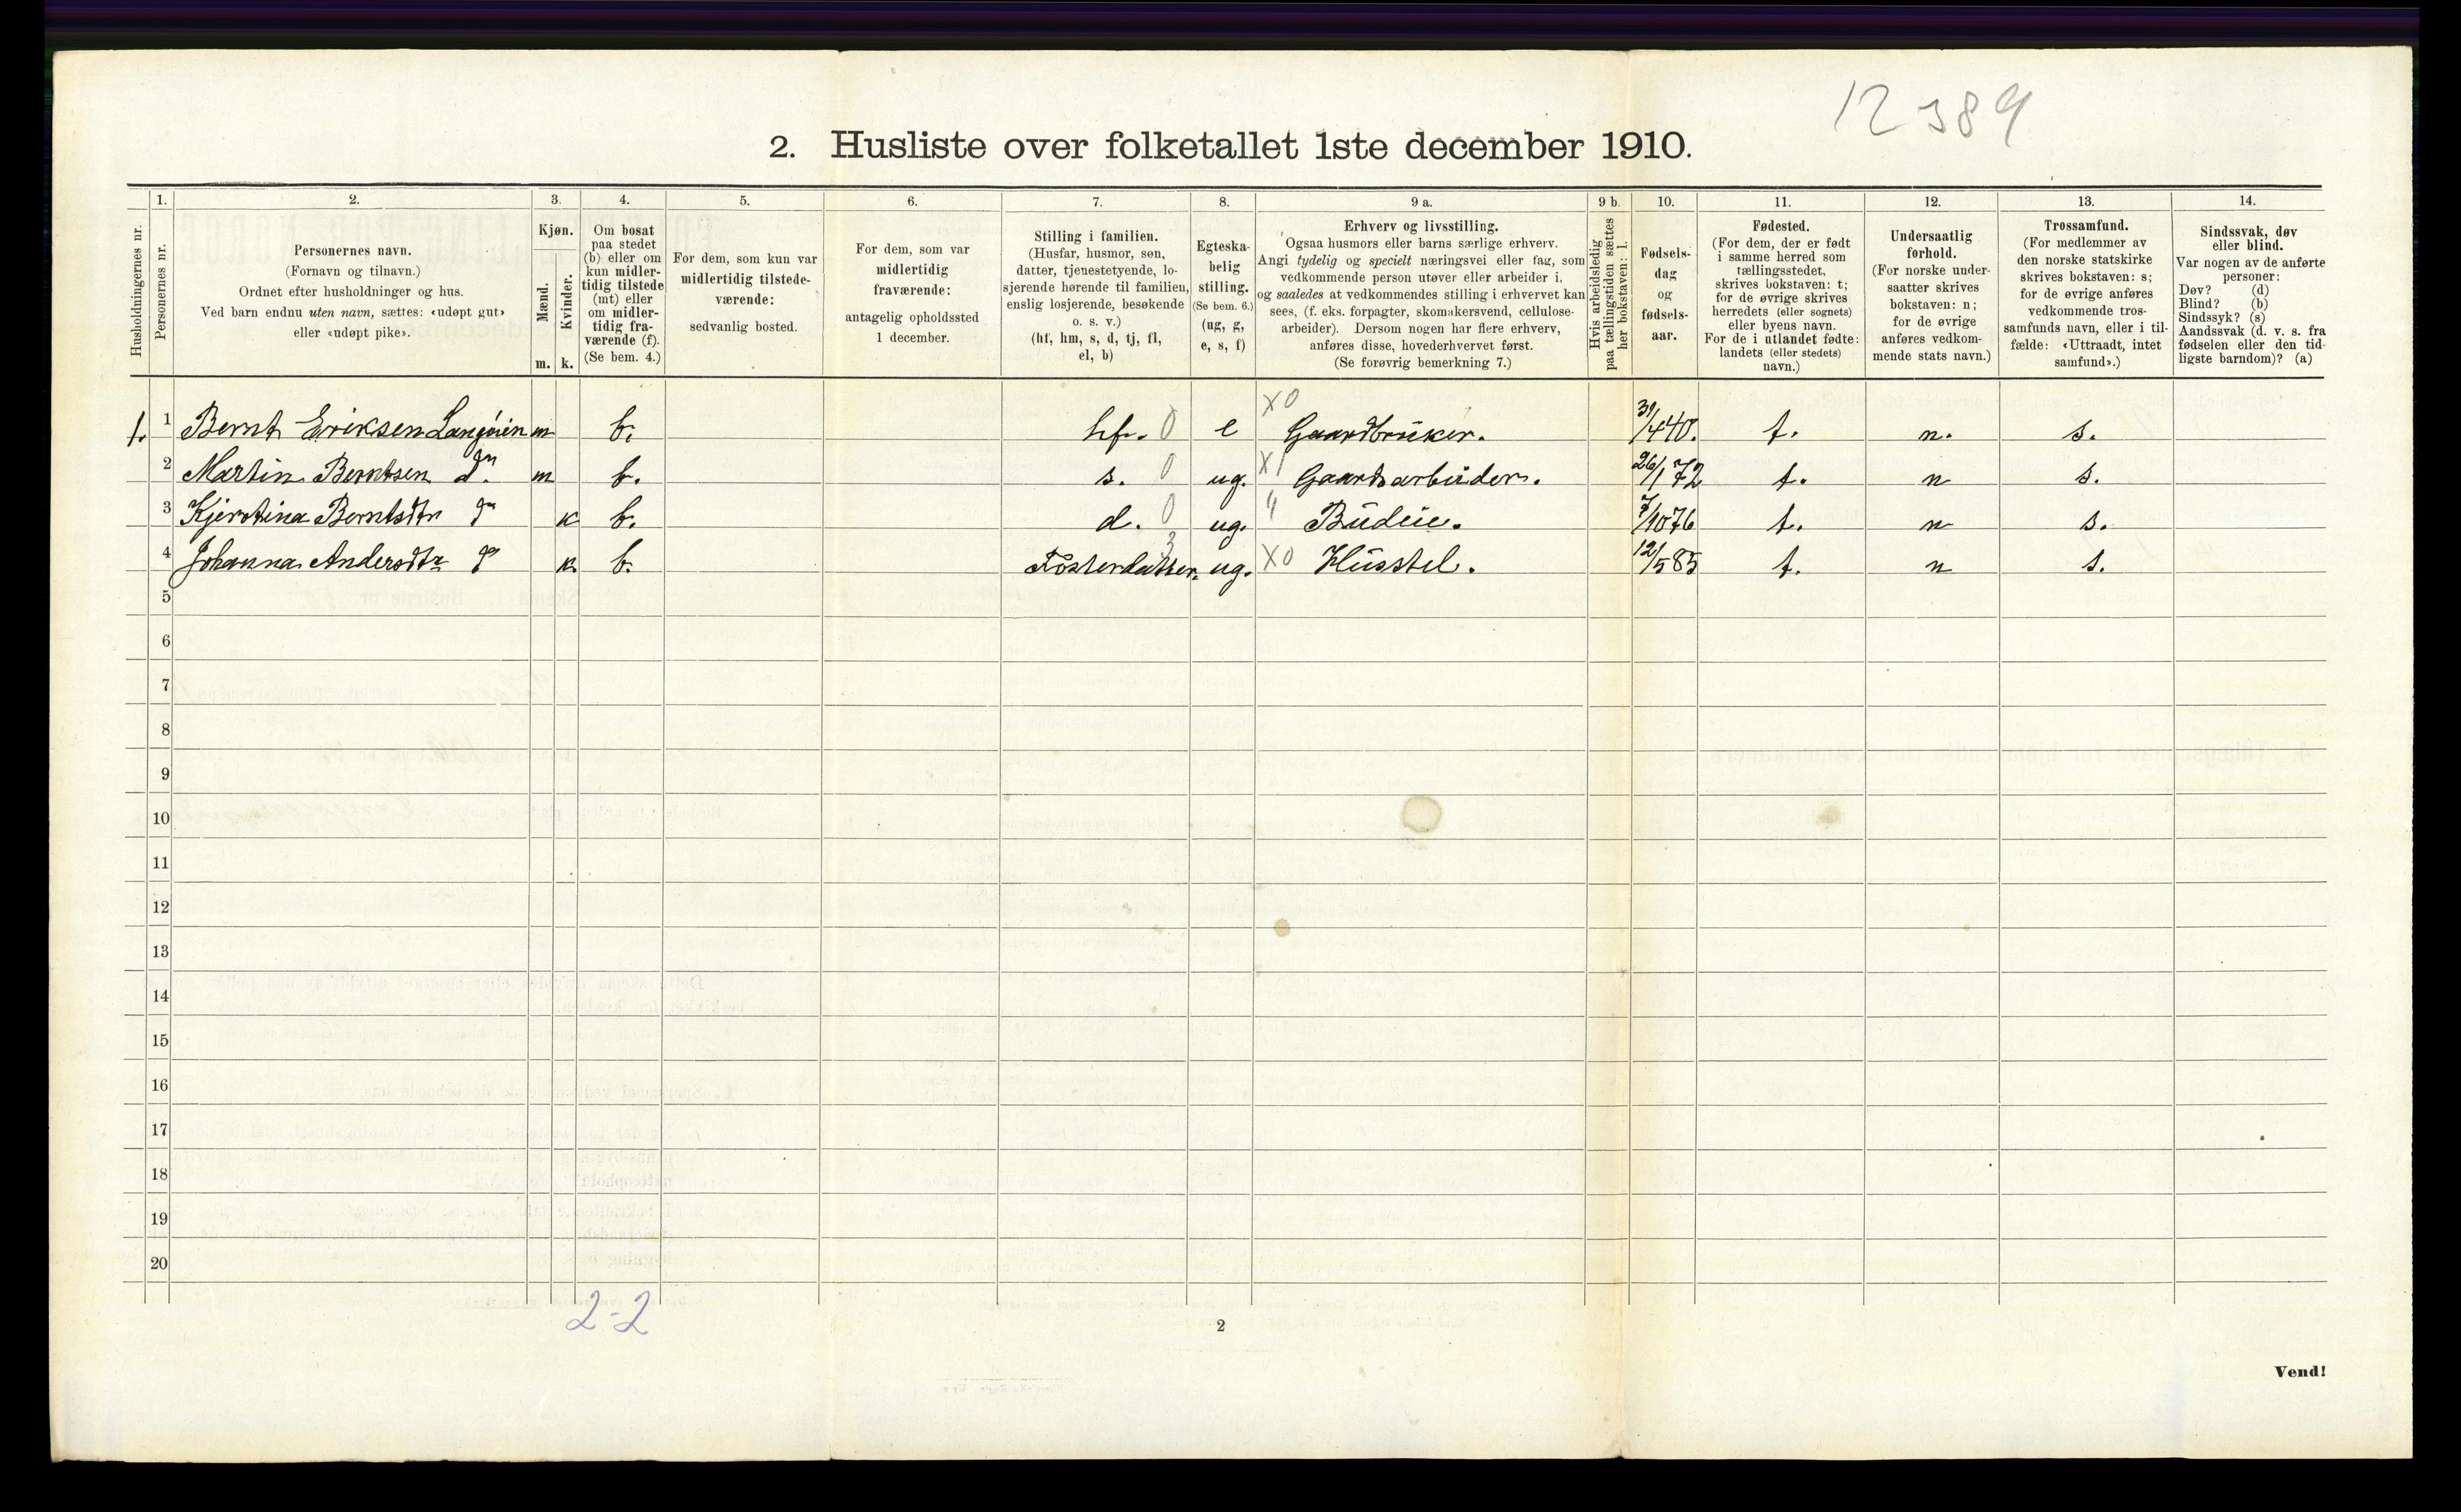 12389
2. Husliste over folketallet 1ste december 1910.
1. 2. 3. 4. 5. 6. 7. 8. 9 a. 9 b. 10. 11. 12. 13. 14.
Husholdningernes nr.
Personernes nr.
Personernes navn.
(Fornavn og tilnavn.)
Ordnet efter husholdninger og hus.
Ved barn endnu uten navn, sættes: «udøpt gut»
eller «udøpt pike».
Kjøn.
Mænd.
Kvinder.
m. k.
Om bosat
paa stedet
(b) eller om
kun midler-
tidig tilstede
(mt) eller
om midler-
tidig fra-
værende (f).
(Se bem. 4.)
For dem, som kun var
midlertidig tilstede-
værende:
sedvanlig bosted.
For dem, som var
midlertidig
fraværende:
antagelig opholdssted
1 december.
Stilling i familien.
(Husfar, husmor, søn,
datter, tjenestetyende, lo-
sjerende hørende til familien,
enslig losjerende, besøkende
o. s. v.)
(hf, hm, s, d, tj, fl,
el, b)
Egteska-
belig
stilling.
(Se bem. 6.)
(ug, g,
e, s, f)
Erhverv og livsstilling.
Ogsaa husmors eller barns særlige erhverv.
Angi tydelig og specielt næringsvei eller fag, som
vedkommende person utøver eller arbeider i,
og saaledes at vedkommendes stilling i erhvervet kan
sees, (f. eks. forpagter, skomakersvend, cellulose-
arbeider). Dersom nogen har flere erhverv,
anføres disse, hovederhvervet først.
(Se forøvrig bemerkning 7.)
Hvis arbeidsledig
paa tællingstiden sættes
her bokstaven: l.
Fødsels-
dag
og
fødsels-
aar.
Fødested.
(For dem, der er født
i samme herred som
tællingsstedet,
skrives bokstaven: t;
for de øvrige skrives
herredets (eller sognets)
eller byens navn.
For de i utlandet fødte:
landets (eller stedets)
navn.)
Undersaatlig
forhold.
(For norske under-
saatter skrives
bokstaven: n;
for de øvrige
anføres vedkom-
mende stats navn.)
Trossamfund.
(For medlemmer av
den norske statskirke
skrives bokstaven: s;
for de øvrige anføres
vedkommende tros-
samfunds navn, eller i til-
fælde: «Uttraadt, intet
samfund».)
Sindssvak, døv
eller blind.
Var nogen av de anførte
personer:
Døv? (d)
Blind? (b)
Sindssyk? (s)
Aandssvak (d. v. s. fra
fødselen eller den tid-
ligste barndom)? (a)
1. 1 Bernt Eriksen Langöien m b. hf. 0 e X0 Gaardbruker. 31/4 40. t. n. s.
2 Martin Berntsen do m b. s. 0 ug. X1 Gaardsarbeider. 26/1 72 t. n s.
3 Kjerstina Berntsdtr do k b. d. 0 ug. " Budeie. 7/10 76 t. n s.
4 Johanna Andersdtr do k b. Fosterdatter. 3 ug. X0 Husstel. 12/5 85 t. n s.
5
6
7
8
9
10
11
12
13
14
15
16
17
18
19
20
2-2
2
Vend!